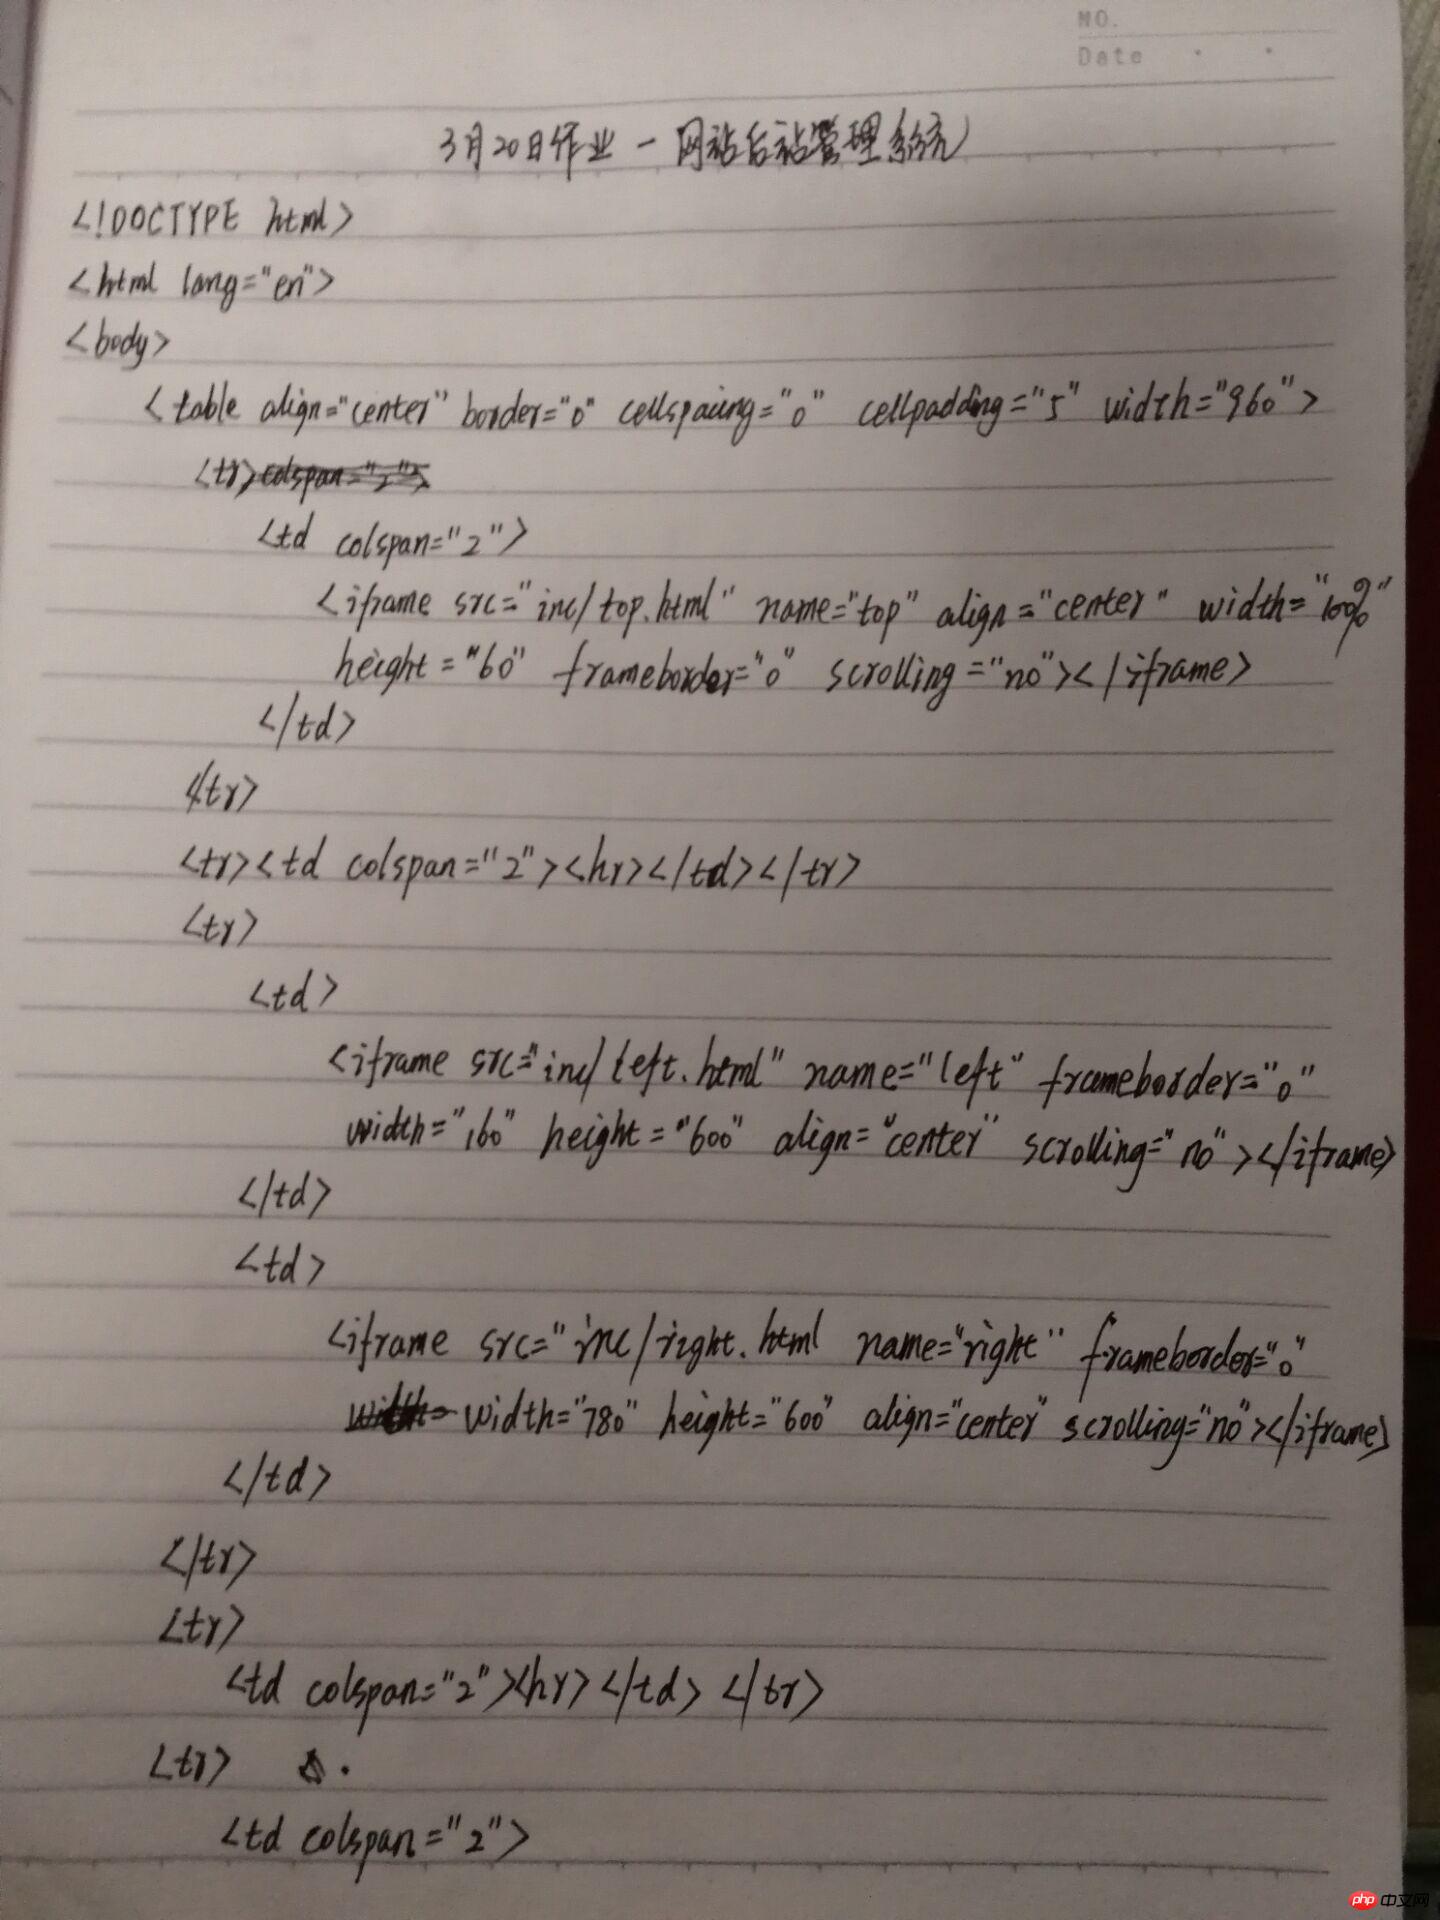 NO.
Date
3月20日作业 - 网站后站管理系统
<!DOCTYPE html>
<html lang="en">
<body>
<table align="center" border="0" cellspacing="0" cellpadding="5" width="960">
<tr>
<td colspan="2">
<iframe src="inc/top.html" name="top" align="center" width="100%"
height="60" frameborder="0" scrolling="no"></iframe>
</td>
</tr>
<tr><td colspan="2"><hr></td></tr>
<tr>
<td>
<iframe src="inc/left.html" name="left" frameborder="0"
width="160" height="600" align="center" scrolling="no"></iframe>
</td>
<td>
<iframe src="inc/right.html name="right" frameborder="0"
width="780" height="600" align="center" scrolling="no"></iframe>
</td>
</tr>
<tr>
<td colspan="2"><hr></td></tr>
<tr>
<td colspan="2">
php 中文网